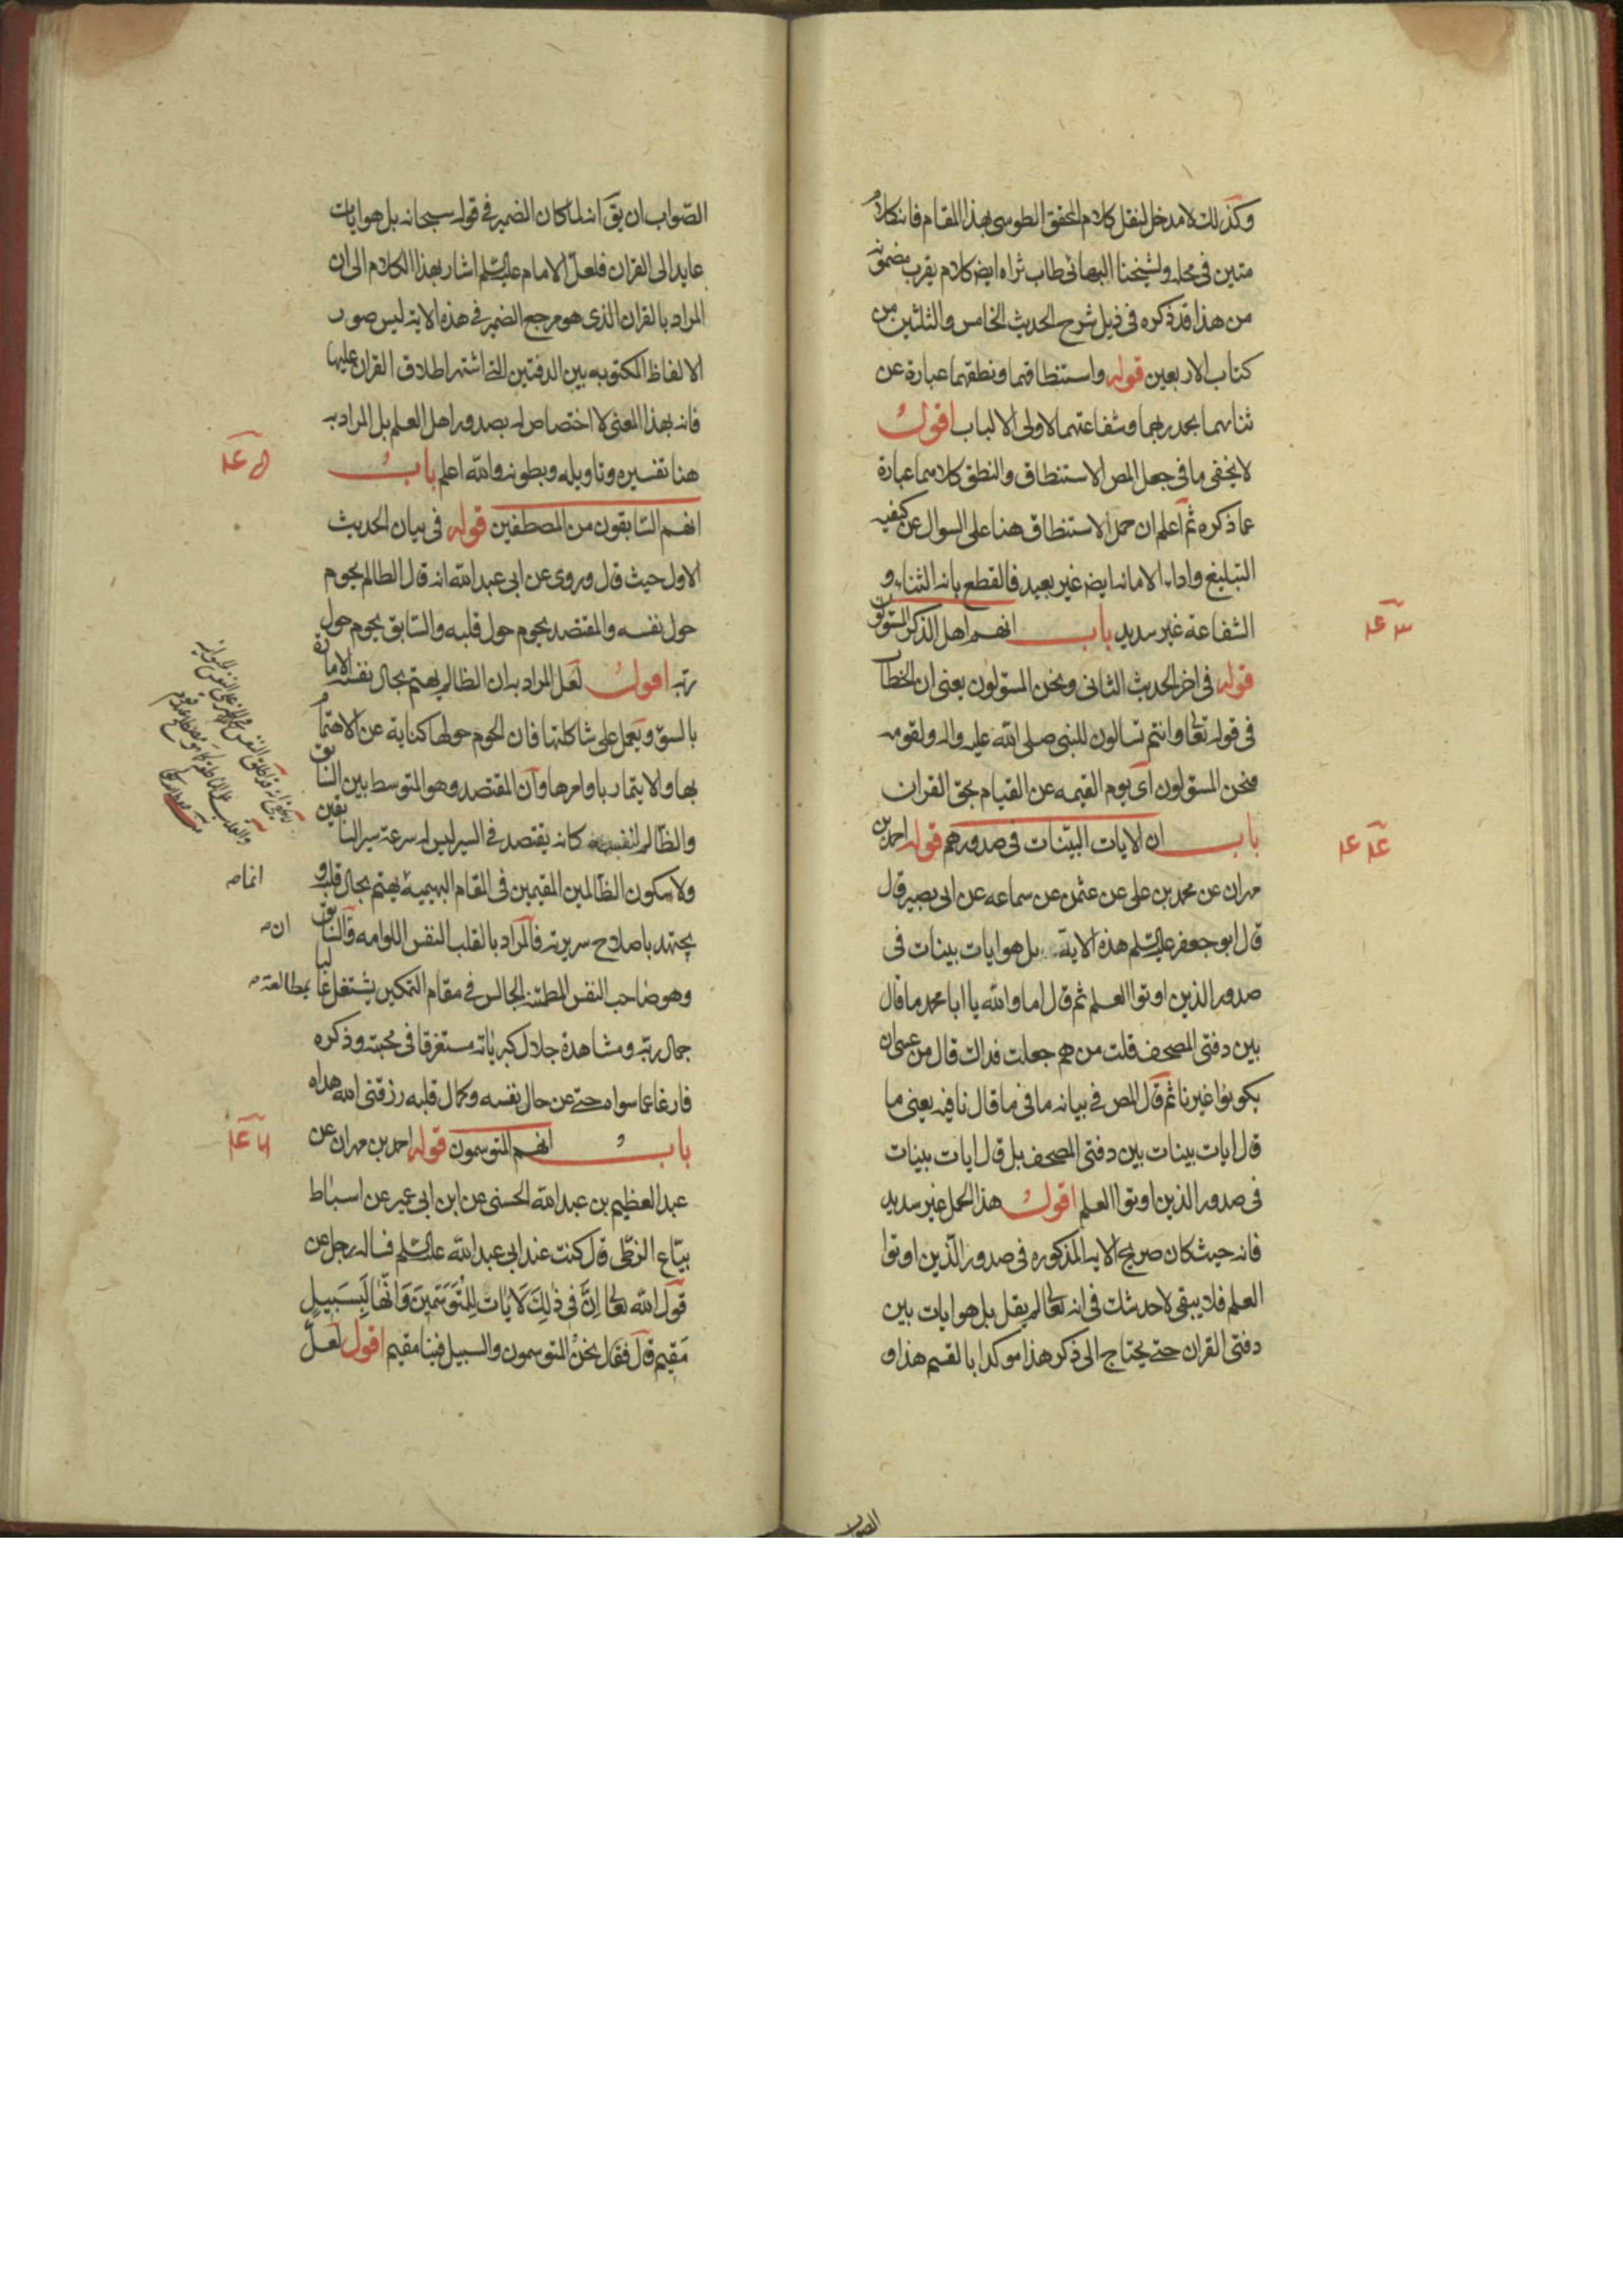 وكذلك لا مدخل لنقل كلام المحقق الطوسي بهذا المقام فانه كلام
متين في محله ولشيخنا البهائي طاب ثراه ايض كلام يقرب مضمونه
من هذا قد ذكره في ذيل شرح الحديث الخامس والثلثين من
كتاب الاربعين قوله واستنطاقهما ونطقهما عبارة عن
ثنائهما بحمد ربهما وشفاعتهما لاولى الالباب اقول
لا يخفى ما في جعل المص الاستنطاق والنطق كلاهما عبارة
عما ذكره ثم اعلم ان حمل الاستنطاق هنا على السوال عن كيفيه
التبليغ واداء الامانه ايض غير بعيد فالقطع بانه الثناء و
الشفاعة غير سديد باب انهم اهل الذكر المسئولون
قوله في اخر الحديث الثاني ونحن المسؤلون يعنى ان الخطاب
في قوله تعالى وانتم تسالون للنبي صلى الله عليه واله ولقومه
فنحن المسؤلون اى يوم القيمه عن القيام بحق القران
باب ان الايات البينات في صدورهم قوله احمد بن
مهران عن محمد بن على عن عثمن عن سماعه عن ابى بصير قال
قال ابو جعفر عليه السلم هذه الاية بل هو ايات بينات في
صدور الذين اوتوا العلم ثم قال اما والله يا ابا محمد ما قال
بين دفتى المصحف قلت من هم جعلت فداك قال من عسى ان
يكونوا غيرنا ثم قال المص في بيانه ما في ما قال نافيه يعنى ما
قال ايات بينات بين دفتى المصحف بل قال ايات بينات
في صدور الذين اوتوا العلم اقول هذا الحمل غير سديد
فانه حيث كان صريح الايه المذكوره في صدور الذين اوتوا
العلم فلا يبقى لاحد شك في انه تعالى لم يقل بل هو ايات بين
دفتى القران حتى يحتاج الى ذكر هذا موكدا بالقسم هذا و
الصواب
٤٣ ع
٤٤ ع
الصواب ان يق انه لما كان الضمير في قوله سبحانه بل هو ايات
عايد الى القران فلعل الامام عليه السلم اشار بهذا الكلام الى ان
المراد بالقران الذى هو مرجع الضمير في هذه الاية ليس صور
الالفاظ المكتوبه بين الدفتين التى اشتهر اطلاق القران عليها
فانه بهذا المعنى لا اختصاص له بصدور اهل العلم بل المراد به
هنا تفسيره وتاويله وبطونه والله اعلم باب
انهم السابقون من المصطفين قوله في بيان الحديث
الاول حيث قال وروى عن ابى عبد الله انه قال الظالم يحوم
حول نفسه والمقتصد يحوم حول قلبه والسابق يحوم حول
ربه اقول لعل المراد به ان الظالم يهتم بحال نفسه الامارة
بالسوء ويعمل على شاكلتها فان الحوم حولها كناية عن الاهتمام
بها والايتمار باوامرها وان المقتصد وهو المتوسط بين السابق
والظالم لنفسه كانه يقتصد في السير ليس له سرعة سير السابقين
ولا سكون الظالمين المقيمين في المقام البهيمية يهتم بحال قلبه و
يجتهد باصلاح سريرته فالمراد بالقلب النفس اللوامه والسابق
وهو صاحب النفس المطمئنه الجالس في مقام التمكين يشتغل غالبا بمطالعة
جمال ربه ومشاهدة جلال كبريائه مستغرقا في محبته وذكره
فارغا عما سواه حتى عن حال نفسه وكمال قلبه رزقنى الله هداه
باب انهم المتوسمون قوله احمد بن مهران عن
عبد العظيم بن عبد الله الحسنى عن ابن ابى عمير عن اسباط
بياع الزطى قال كنت عند ابى عبد الله عليه السلم فساله رجل عن
قول الله تعالى اِنَّ في ذٰلِكَ لَايٰات لِلْمُتَوَسِّمينَ وَانَّهٰا لَبِسَبيلٍ
مُقيم قال فقال نحنُ المتوسمون والسبيل فينا مقيم اقول لعل
انما ص
ان ص